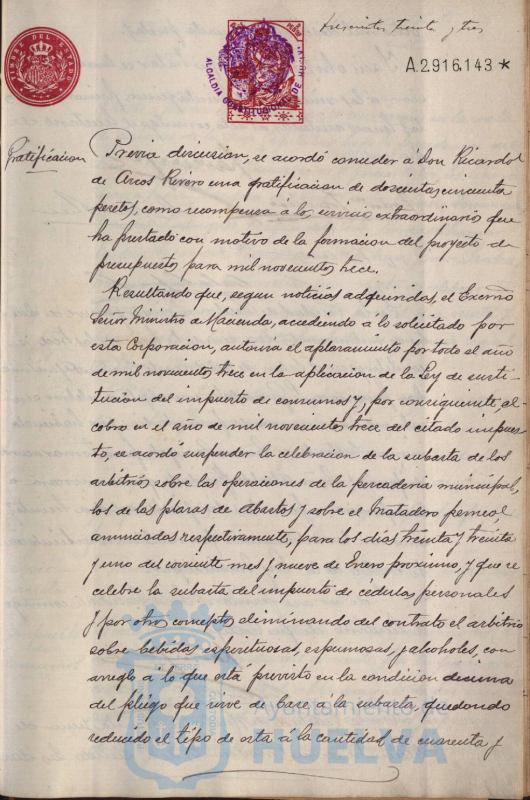 trescientos treinta y tres
TIMBRE DEL ESTADO
ALCALDIA CONSTITUCIONAL DE
A.2.916.143 *
Gratificacion
Previa discusion, se acordó conceder á Don Ricardo
de Arcos Rivero una gratificacion de doscientas cincuenta
pesetas, como recompensa á los servicios extraordinarios que
ha prestado con motivo de la formacion del proyecto de
presupuestos para mil novecientos trece.
Resultando que, segun noticias adquiridas, el Excmo
Señor Ministro de Hacienda, accediendo á lo solicitado por
esta Corporacion, autoriza el aplazamiento por todo el año
de mil novecientos trece en la aplicacion de la Ley de susti-
tucion del impuesto de consumos y, por consiguiente, el
cobro en el año de mil novecientos trece del citado impues-
to, se acordó suspender la celebracion de la subasta de los
arbitrios sobre las operaciones de la pescaderia municipal,
los de las plazas de Abastos y sobre el Matadero
anunciadas respectivamente, para los dias treinta y treinta
y uno del corriente mes y nueve de Enero proximo, y que se
celebre la subasta del impuesto de cédulas personales
y por otros conceptos eliminando del contrato el arbitrio
sobre bebidas espirituosas, espumosas, y alcoholes, con
arreglo á lo que está previsto en la condicion decima
del pliego que sirve de base á la subasta, quedando
reducido el tipo de esta á la cantidad de cuarenta y
Ayuntamiento de
HUELVA